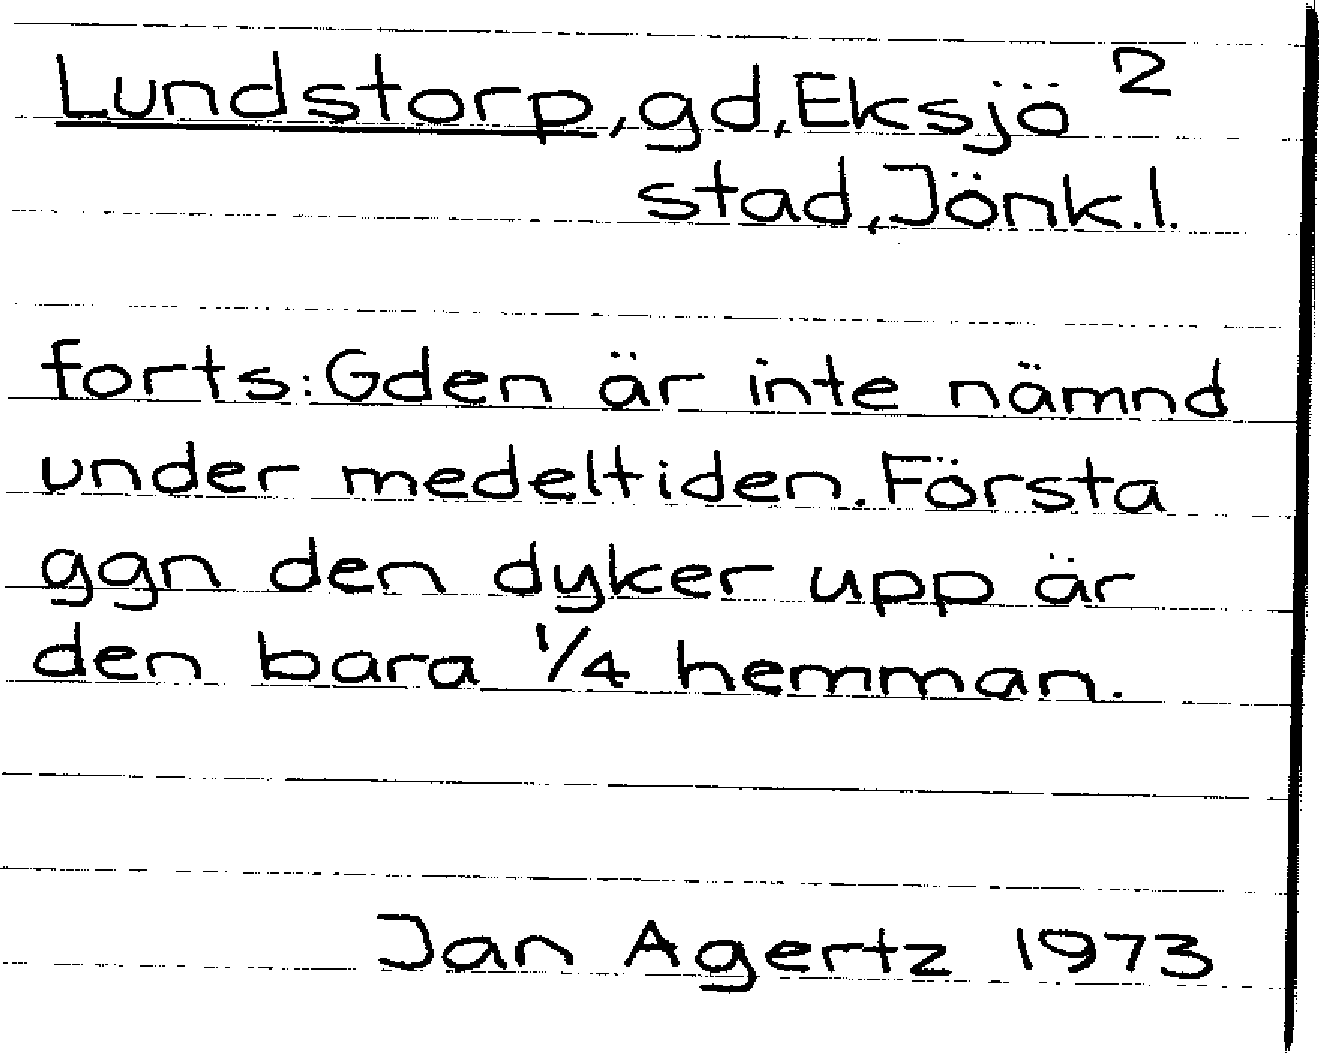 Lundstorp, gd, Eksjö 2
stad, Jönk.l.
forts: Gden är inte nämnd
under medeltiden. Första
ggn den dyker upp är
den bara 1/4 hemman.
Jan Agertz 1973